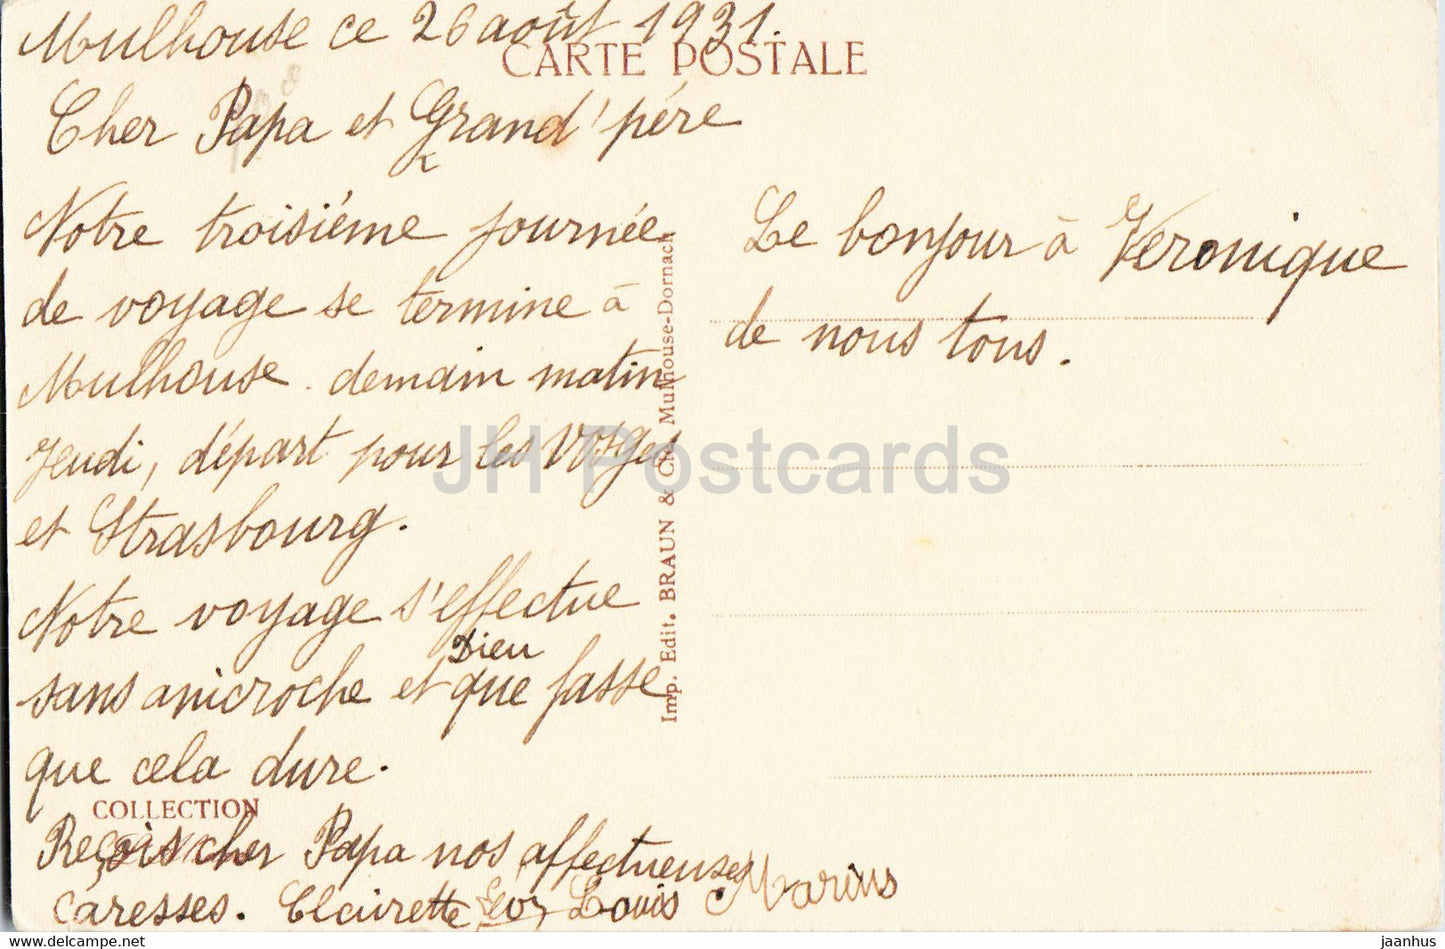 Mulhouse ce 26 août 1931.
CARTE POSTALE
Cher Papa et Grand'père
Notre troisiéme journée
de voyage se termine à
Mulhouse. demain matin
Jeudi, départ pour les Vosges
et Strasbourg.
Notre voyage s'effectue
sans anicroche et que Dieu fasse
que cela dure.
COLLECTION
Reçois cher Papa nos affectueuses
caresses. Clairette Louis Marius
Imp. Edit. BRAUN & Cie, Mulhouse-Dornach
Le bonjour à Veronique
de nous tous.
JH Postcards
jaanhus @ delcampe.net